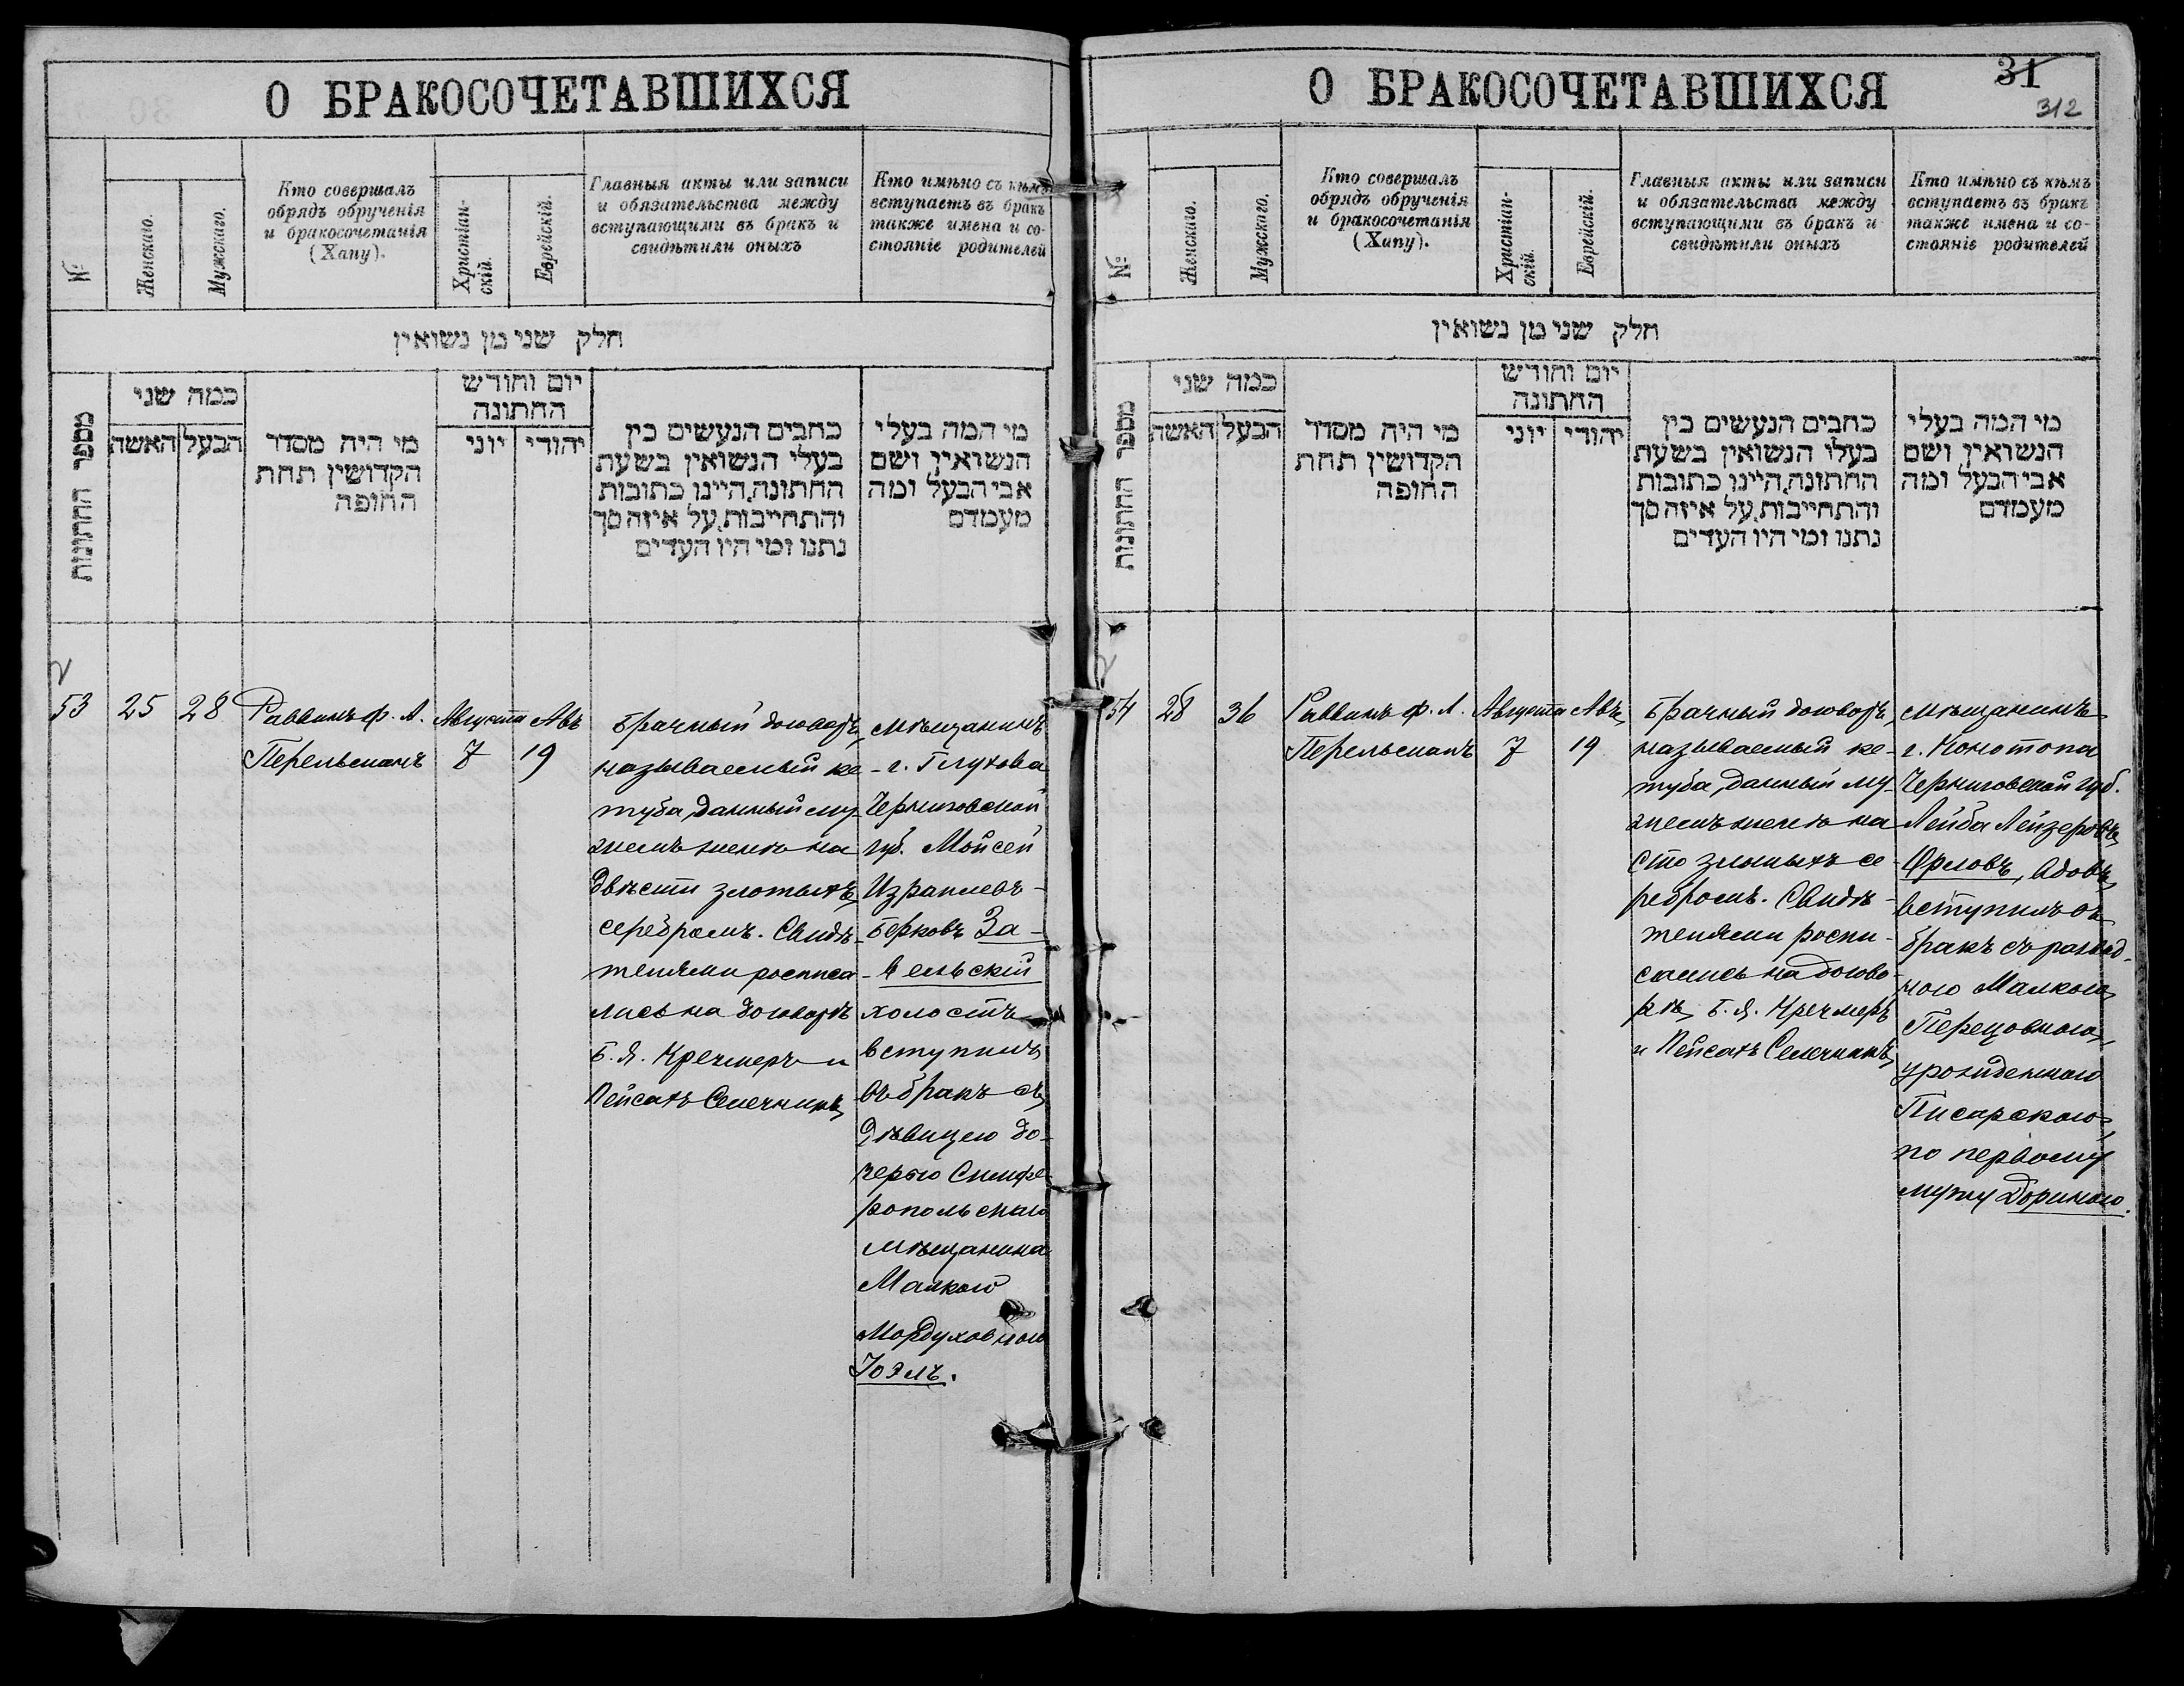 О БРАКОСОЧЕТАВШИХСЯ
№
Женскаго.
Мужскаго.
Кто совершалъ
обрядъ обрученія
и бракосочетанія
(Хапу).
Христіан-
скій.
Еврейскій.
Главныя акты или записи
и обязательства между
вступающими въ бракъ и
свидѣтили оныхъ
Кто имѣно съ кѣмъ
вступаетъ въ бракъ
также имена и со-
стояніе родителей
חלק שני מן נשואין
מספר החתונות
כמה שני
האשה
הבעל
מי היה מסדר
הקדושין תחת
החופה
יום וחודש
החתונה
יוני
יהודי
כתבים הנעשים בין
בעלי הנשואין בשעת
החתונה, היינו כתובות
והתחייבות, על איזה סך
נתנו ומי היו העדים
מי המה בעלי
הנשואין ושם
אבי הבעל ומה
מעמדם
53
25
28
Раввинъ Ф. Л.
Перельманъ
Августа
7
Авъ
19
Брачный договоръ,
называемый ке-
туба, данный му-
жемъ женѣ на
двѣсти злотыхъ
серебромъ. Свидѣ-
телями росписа-
лись на договорѣ
Б. Я. Кречмеръ и
Пейсахъ Селечникъ
мѣщанинъ
г. Глухова
Черниговской
губ. Мойсей
Израилевъ-
Берковъ За-
вельскій
холостъ
вступилъ
въ бракъ съ
дѣвицею до-
черью Симфе-
ропольскаго
мѣщанина
Малкою
Мордуховною
Іоэль.
О БРАКОСОЧЕТАВШИХСЯ
31
312
№
Женскаго.
Мужскаго.
Кто совершалъ
обрядъ обрученія
и бракосочетанія
(Хапу).
Христіан-
скій.
Еврейскій.
Главныя акты или записи
и обязательства между
вступающими въ бракъ и
свидѣтили оныхъ
Кто имѣно съ кѣмъ
вступаетъ въ бракъ
также имена и со-
стояніе родителей
חלק שני מן נשואין
מספר החתונות
כמה שני
האשה
הבעל
מי היה מסדר
הקדושין תחת
החופה
יום וחודש
החתונה
יוני
יהודי
כתבים הנעשים בין
בעלי הנשואין בשעת
החתונה, היינו כתובות
והתחייבות, על איזה סך
נתנו ומי היו העדים
מי המה בעלי
הנשואין ושם
אבי הבעל ומה
מעמדם
54
28
36
Раввинъ Ф. Л.
Перельманъ
Августа
7
Авъ
19
Брачный договоръ,
называемый ке-
туба, данный му-
жемъ женѣ на
сто злотыхъ се-
ребромъ. Свидѣ-
телями роспи-
сались на догово-
рѣ, Б. Я. Кречмеръ
и Пейсахъ Селечникъ
мѣщанинъ
г. Конотопа
Черниговской губ.
Лейба Лейзеровъ
Орловъ, вдовъ,
вступилъ въ
бракъ съ развед-
ною Малкою
Перецовною,
урожденною
Писарскою,
по первому
мужу Дориною.